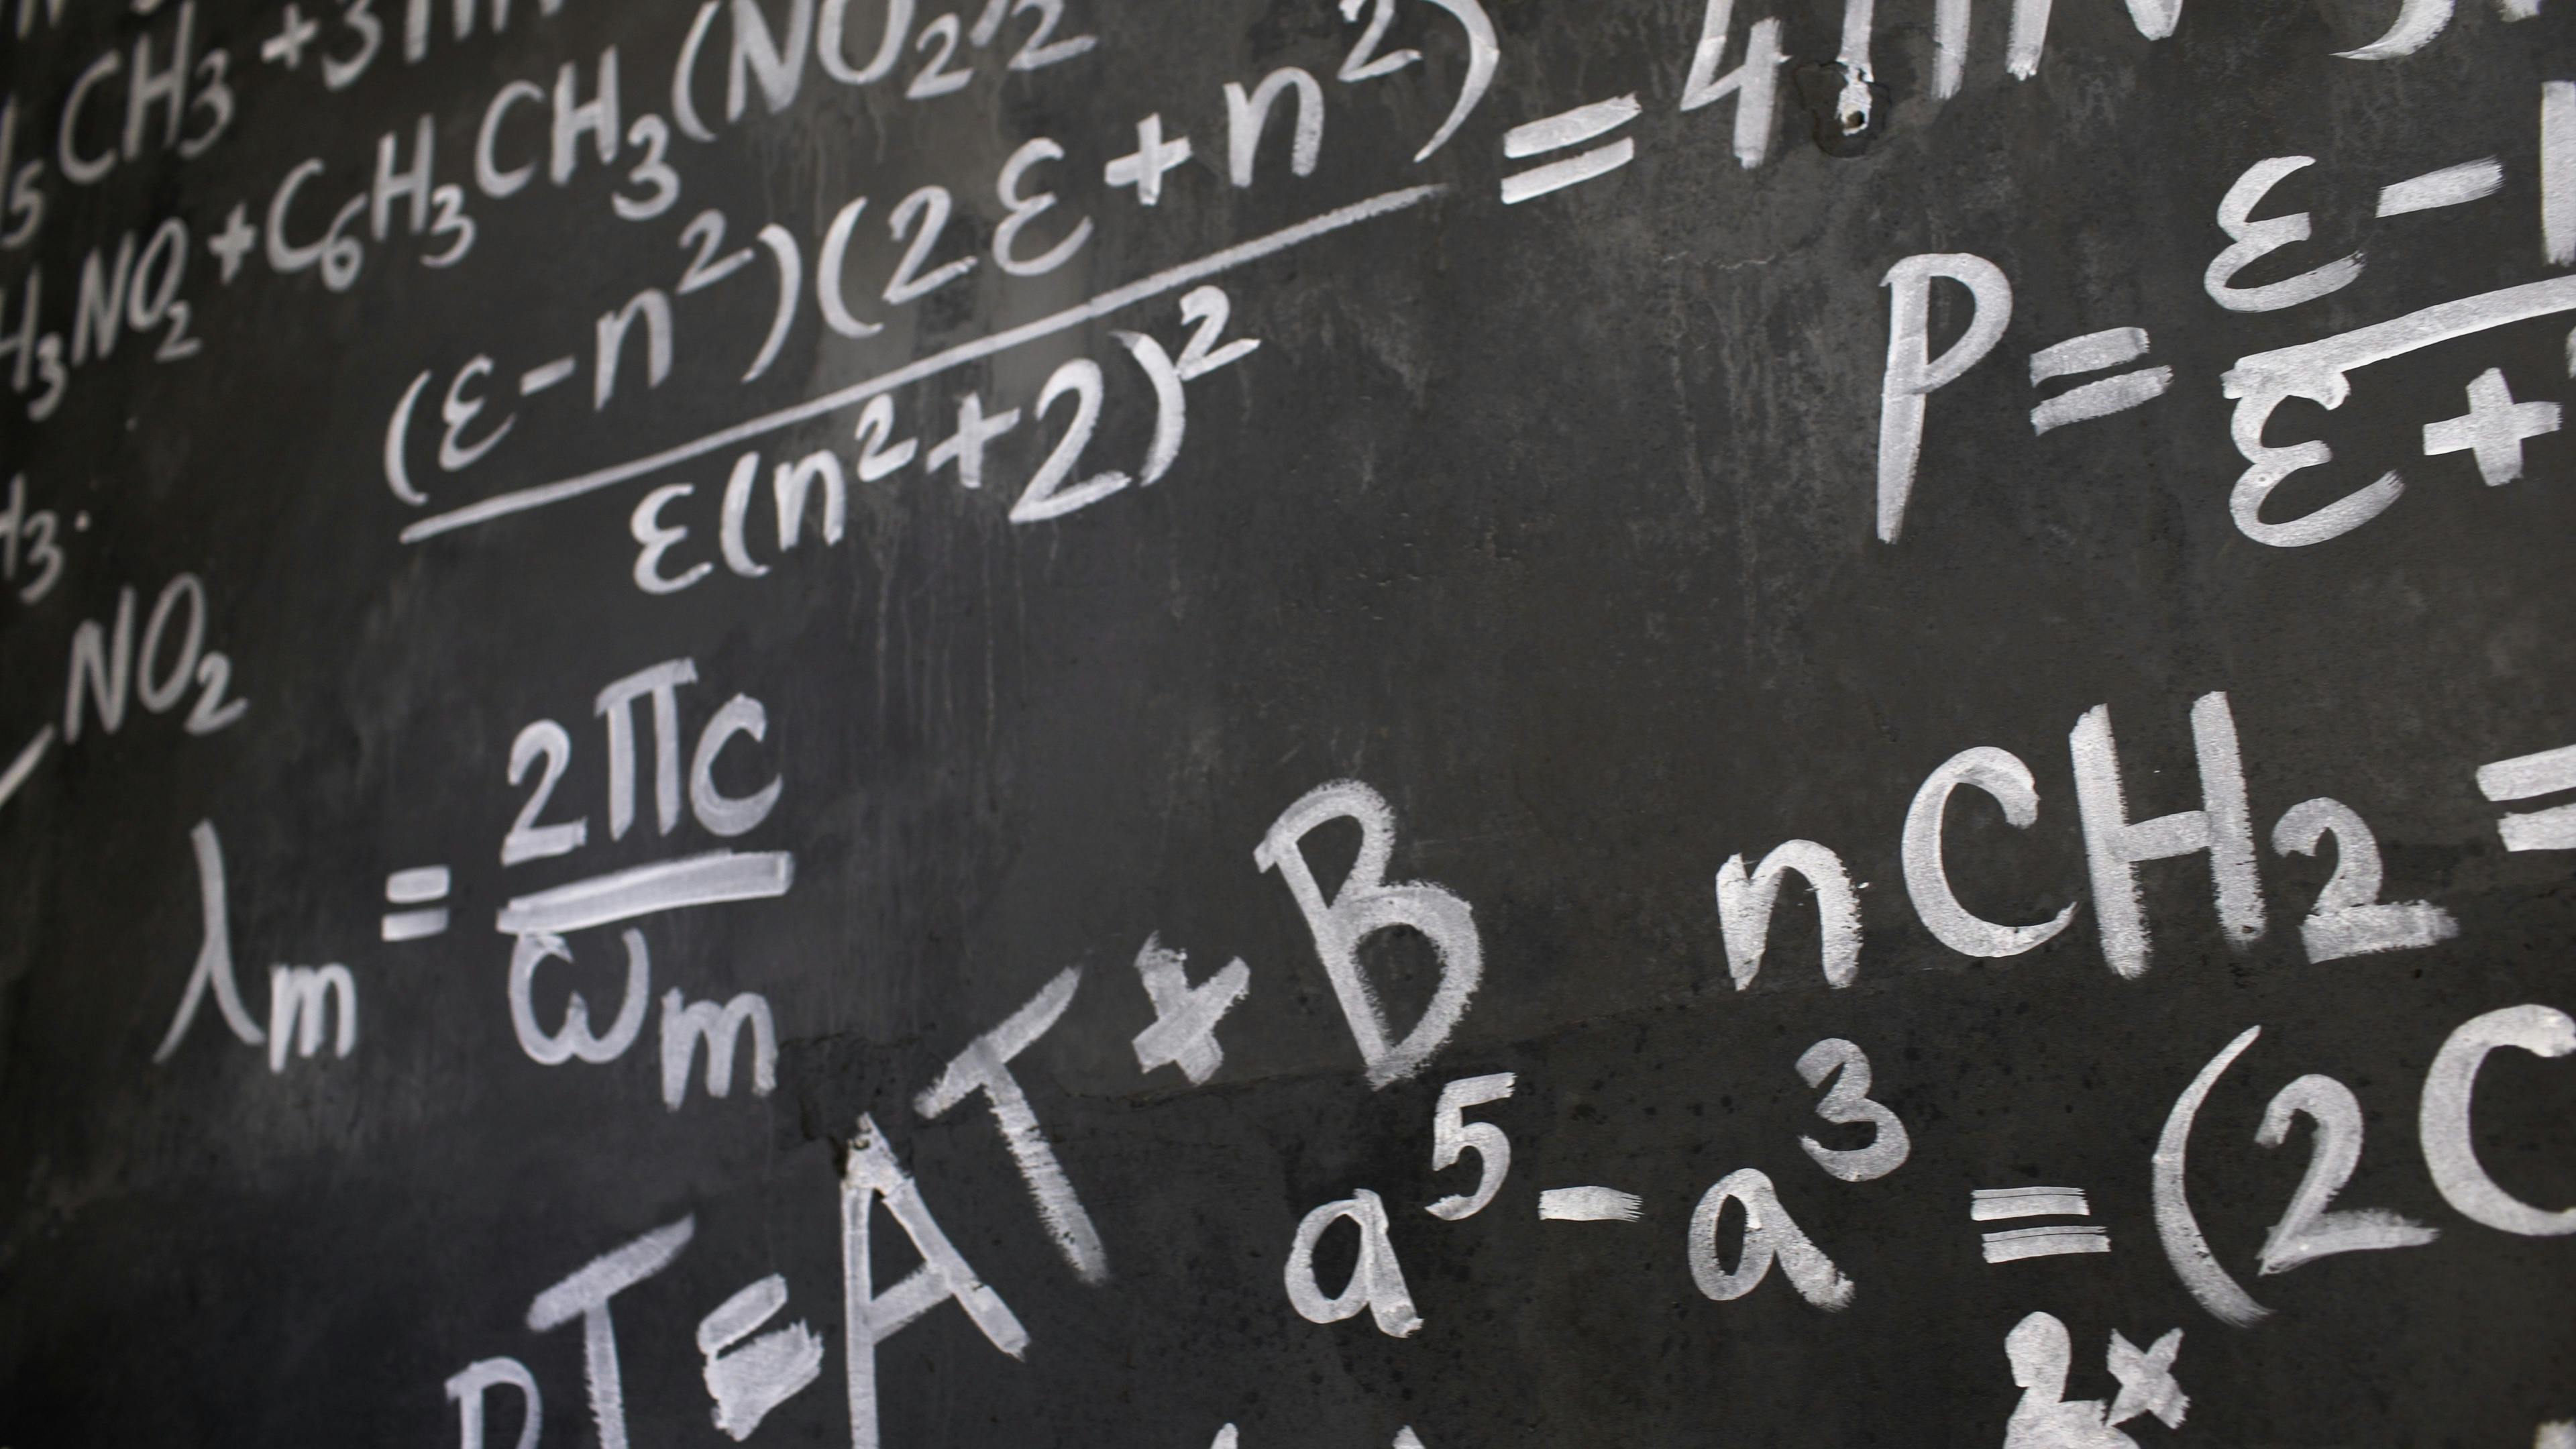 5CH3 + 3
H3NO2 + C6H3CH3(NO2)2
(ε-n²)(2ε+n²) = 4
ε(n²+2)²
P = ε-
ε+
H3.
NO2
λm = 2πc
ωm
nCH2 =
PT = AT + B
a⁵ - a³ = (2C
2x